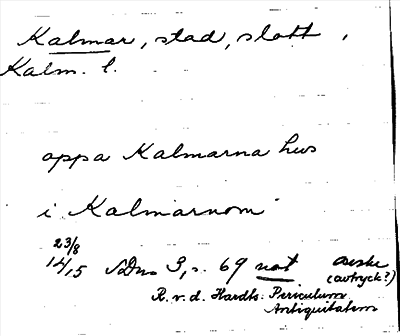 Kalmar, stad, slott,
Kalm. l.
oppa Kalmarna hus
i Kalmarnom
23/8
1415 SDns 3, s. 69 not avskr
(avtryck?)
R. v. d. Hardts: Periculum
Antiquitatem